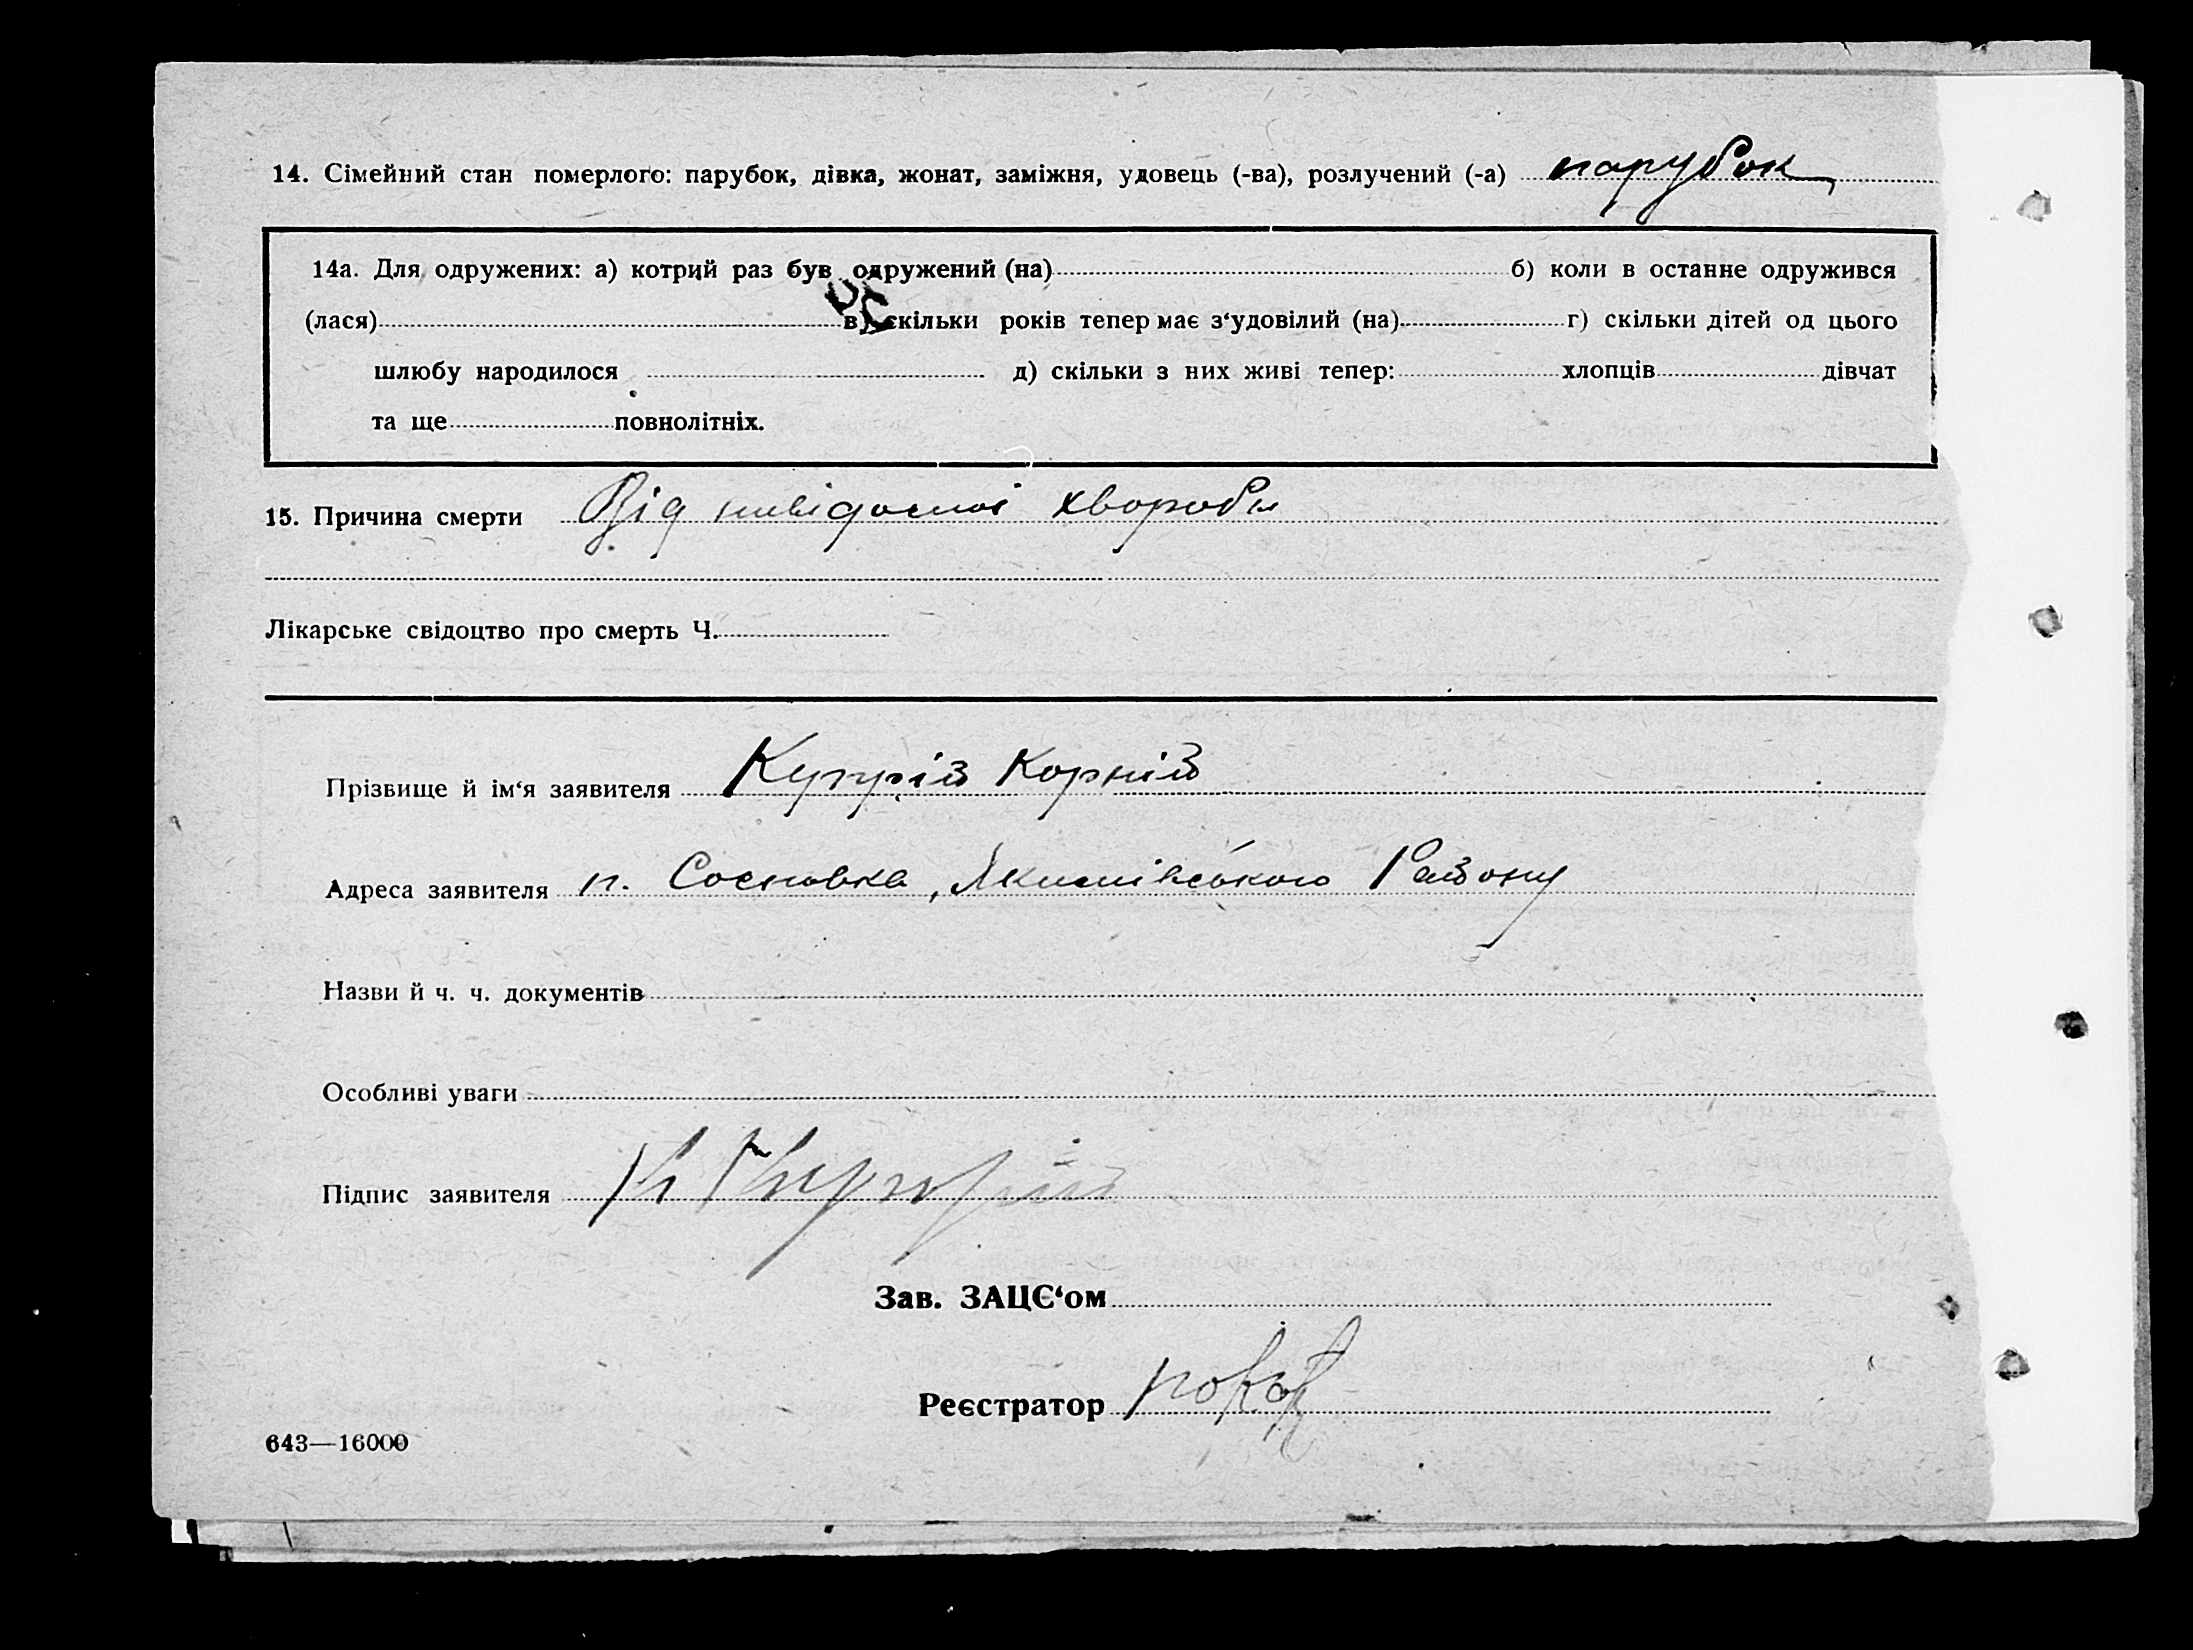 14. Сімейний стан померлого: парубок, дівка, жонат, заміжня, удовець (-ва), розлучений (-а) парубок
14а. Для одружених: а) котрий раз був одружений (на) б) коли в останнє одружився
(лася) в) скільки років тепер має з‘удовілий (на) г) скільки дітей од цього
шлюбу народилося д) скільки з них живі тепер: хлопців дівчат
та ще повнолітніх.
15. Причина смерти Від невідомої хвороби
Лікарське свідоцтво про смерть Ч.
Прізвище й ім‘я заявителя Купрій Корній
Адреса заявителя п. Сосновка, Якимівського Району
Назви й ч. ч. документів
Особливі уваги
Підпис заявителя К
Зав. ЗАЦС‘ом
Реєстратор
643—16000